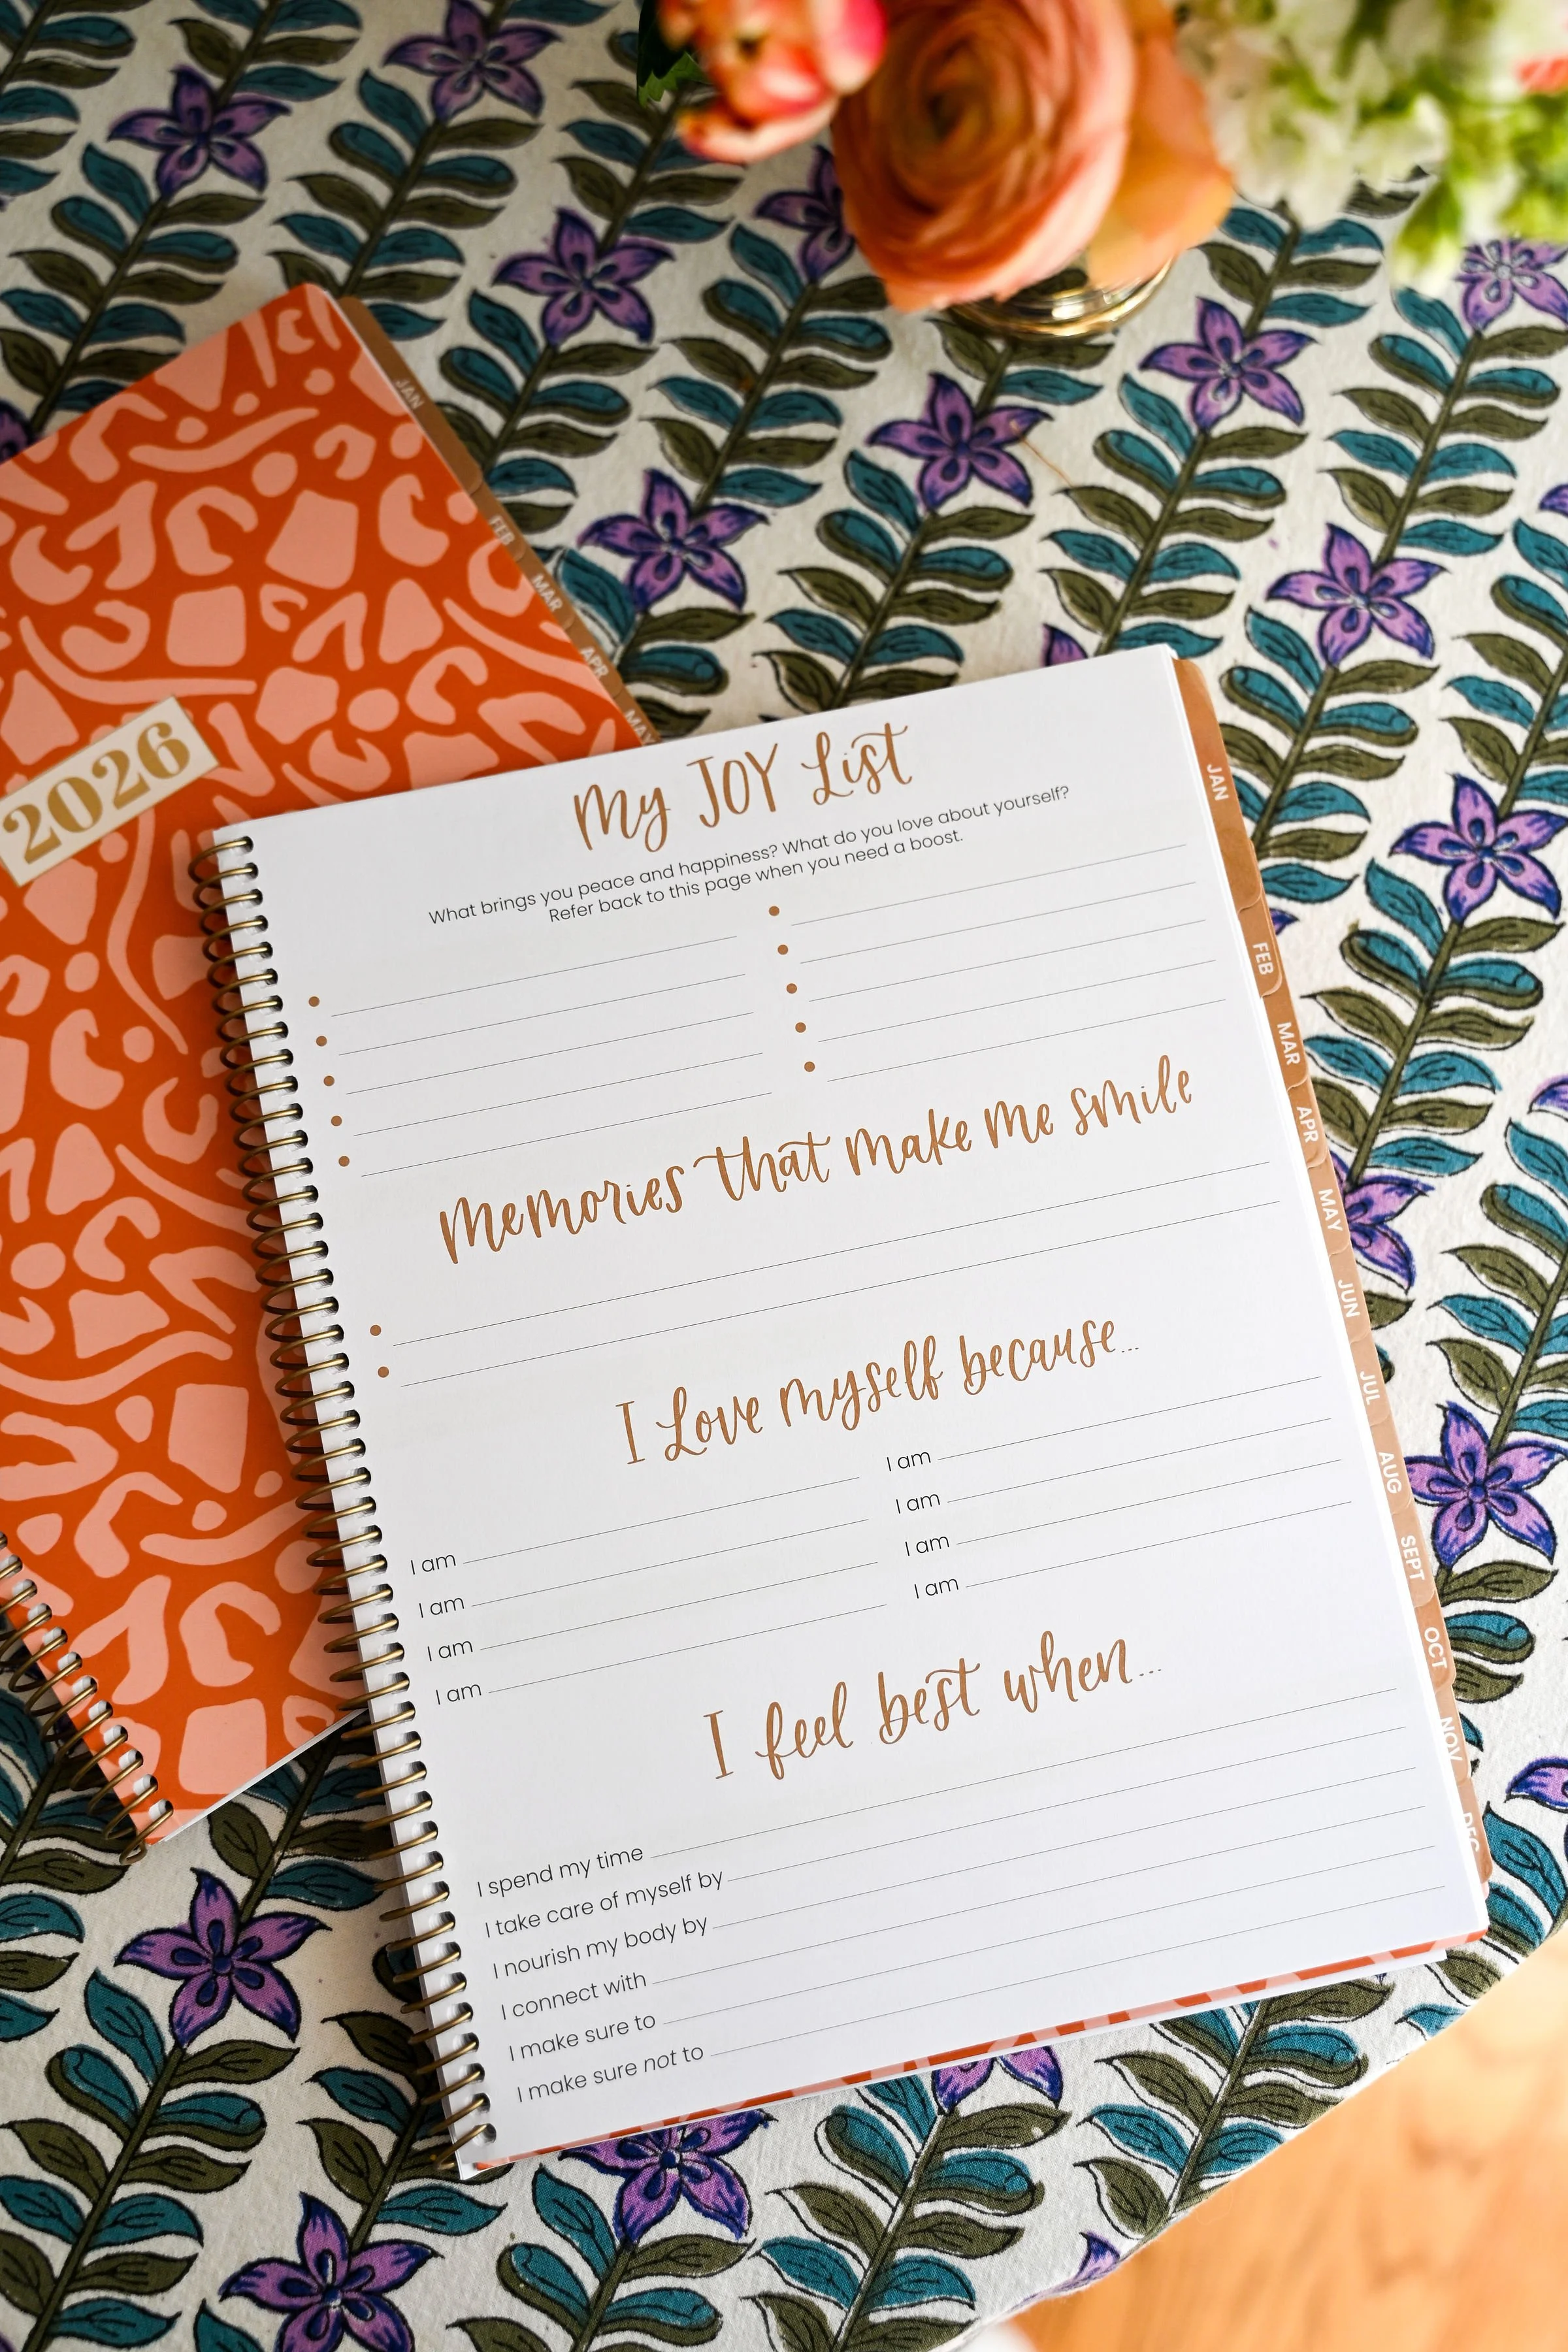 JAN
FEB
MAR
APR
MAY
2026
My JOY List
What brings you peace and happiness? What do you love about yourself?
Refer back to this page when you need a boost.
Memories that make me smile
I Love myself because...
I am
I am
I am
I am
I am
I am
I am
I am
I feel best when...
I spend my time
I take care of myself by
I nourish my body by
I connect with
I make sure to
I make sure not to
JAN
FEB
MAR
APR
MAY
JUN
JUL
AUG
SEPT
OCT
NOV
DEC